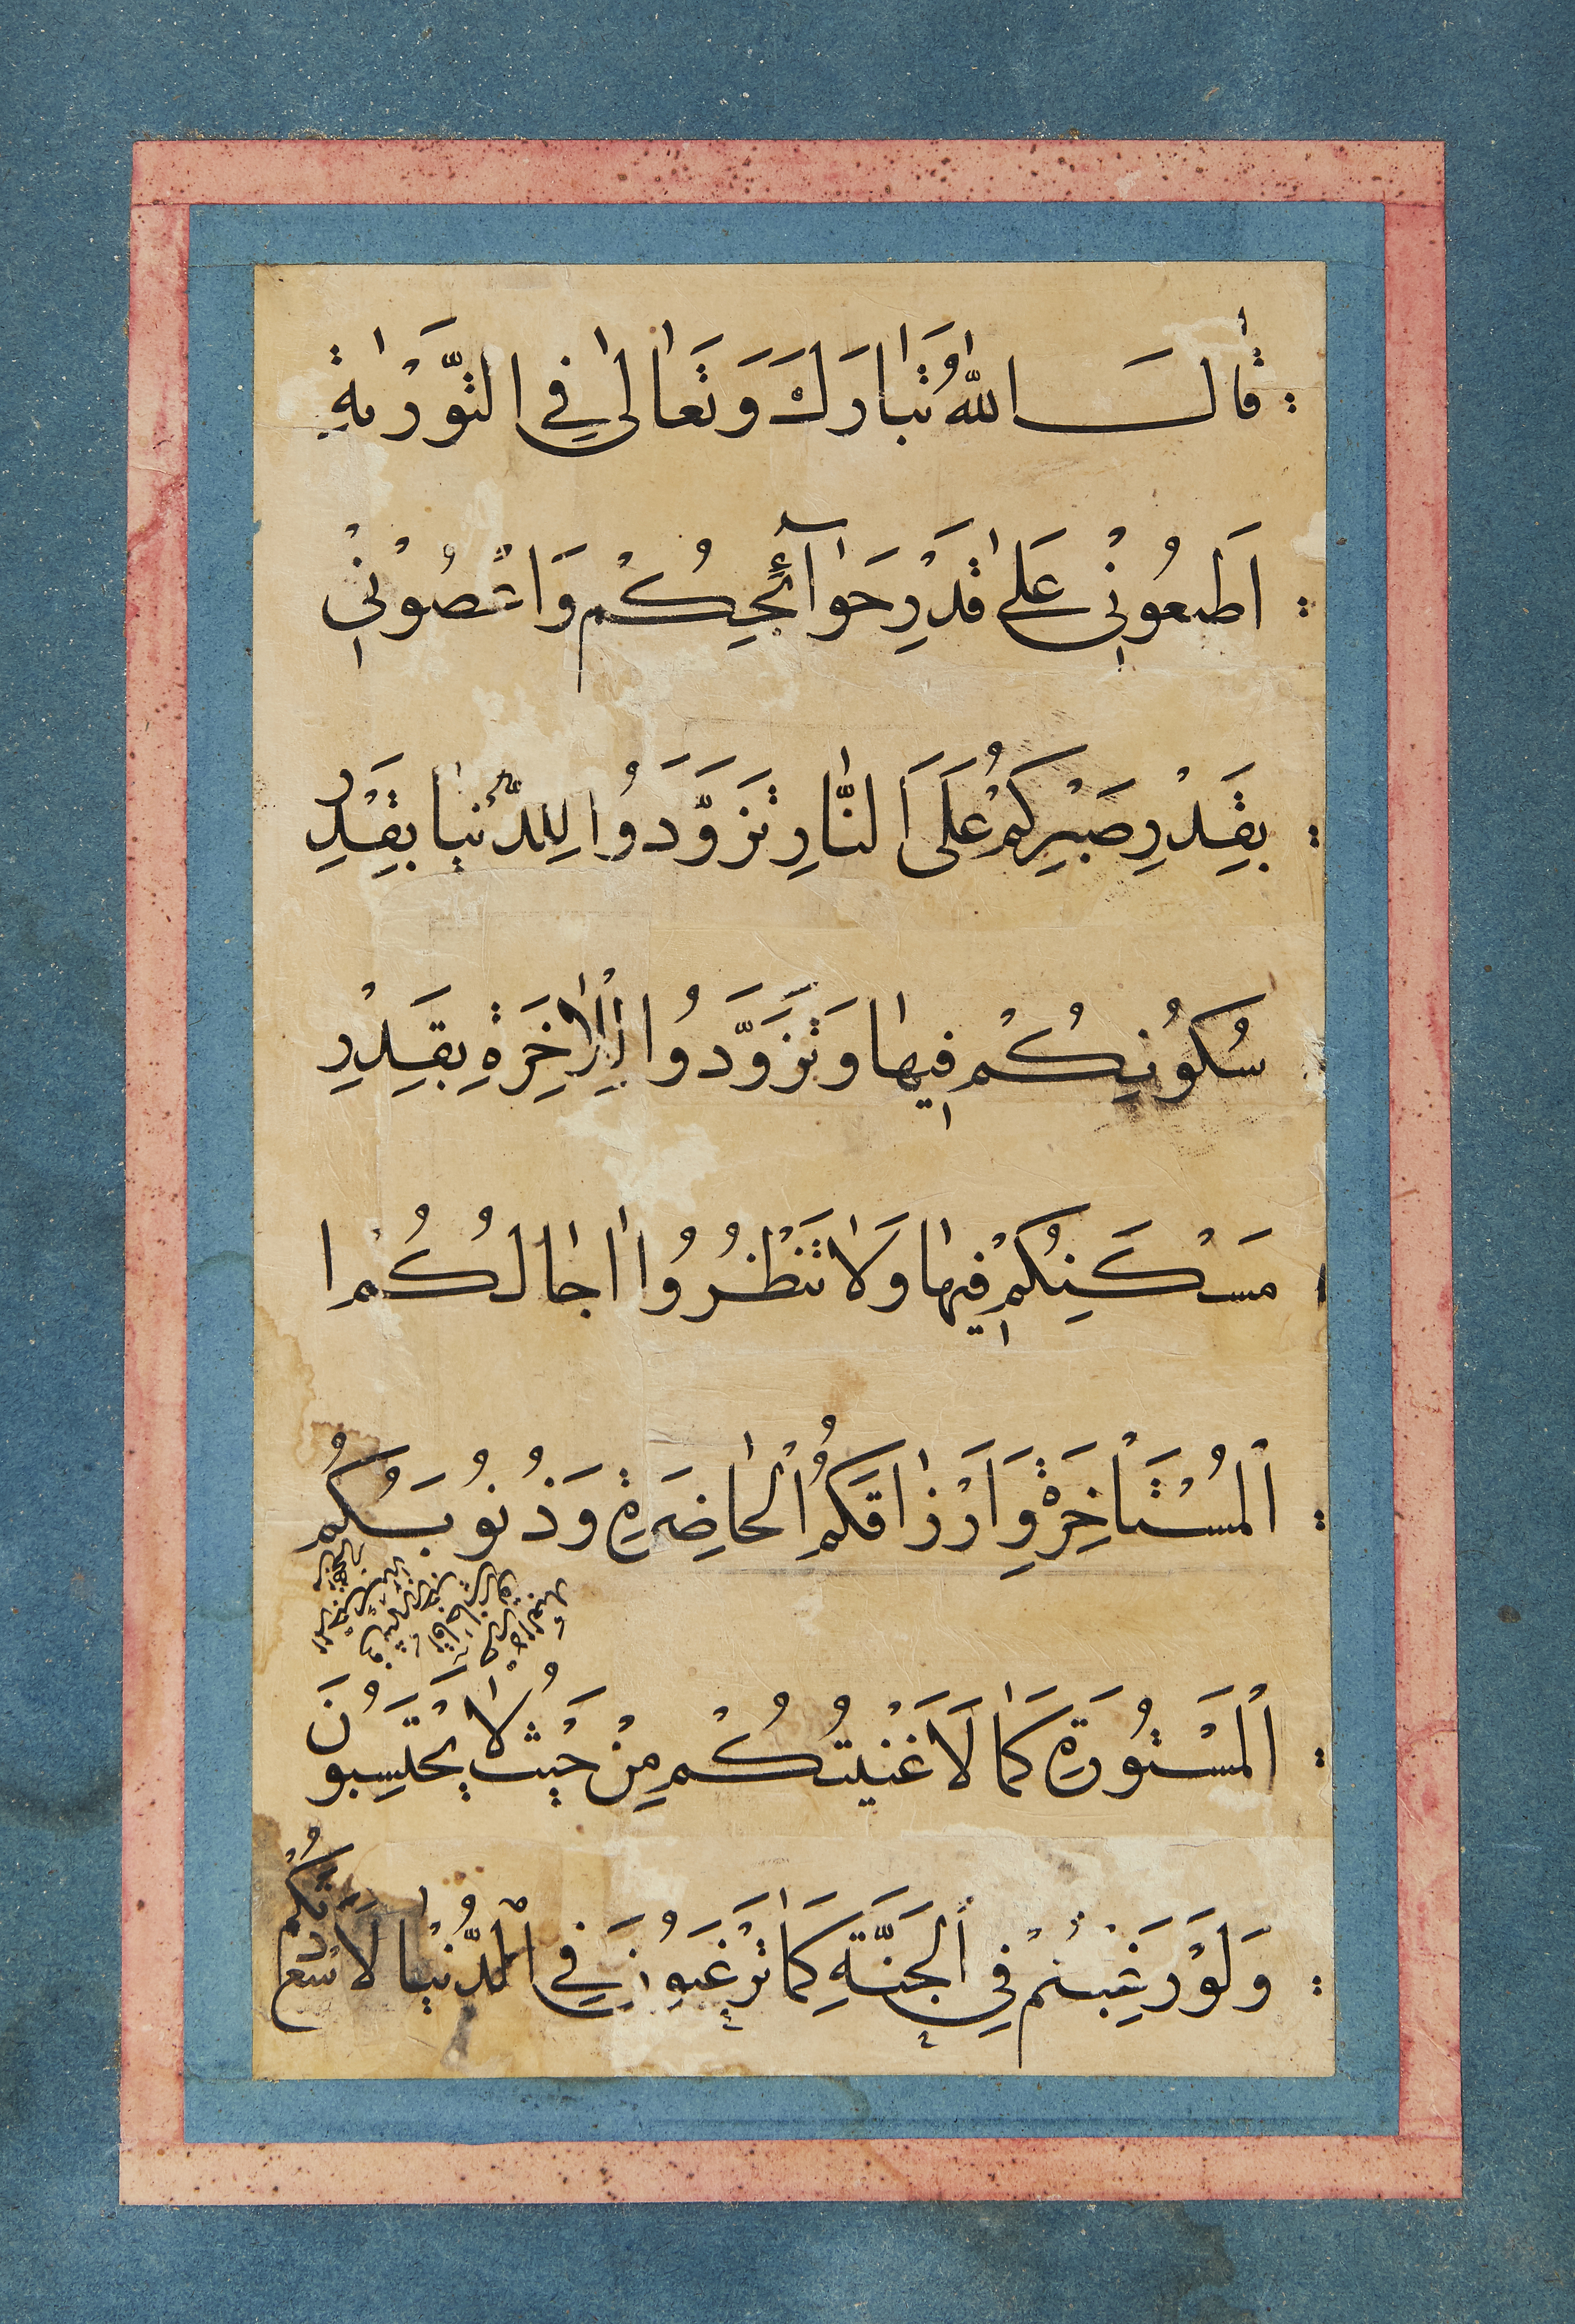 قَالَ اللّٰهُ تَبَارَكَ وَتَعَالٰى فِي التَّوْرٰىةِ
اَطِعُونِيْ عَلٰى قَدْرِ حَوَآئِجِكُمْ وَاعْصُوْنِيْ
بِقَدْرِ صَبْرِكُمْ عَلَى النَّارِ تَزَوَّدُوا لِلدُّنْيَا بِقَدْرِ
سُكُونِكُمْ فِيهَا وَتَزَوَّدُوا لِلْاٰخِرَةِ بِقَدْرِ
مَسْكَنِكُمْ فِيهَا وَلَا تَنْظُرُوا اٰجَالَكُمُ ا
الْمُسْتَأْخِرَةَ وَاَرْزَاقَكُمُ الْحَاضِرَةِ وَذُنُوبَكُمُ
الْمَسْتُورَةِ كَمَا لَاَغْنَيْتُكُمْ مِنْ حَيْثُ لَا يَحْتَسِبُونَ
وَلَوْ رَغِبْتُمْ فِي الْجَنَّةِ كَمَا تَرْغَبُونَ فِي الدُّنْيَا لَاَسْعَدَتْكُمْ